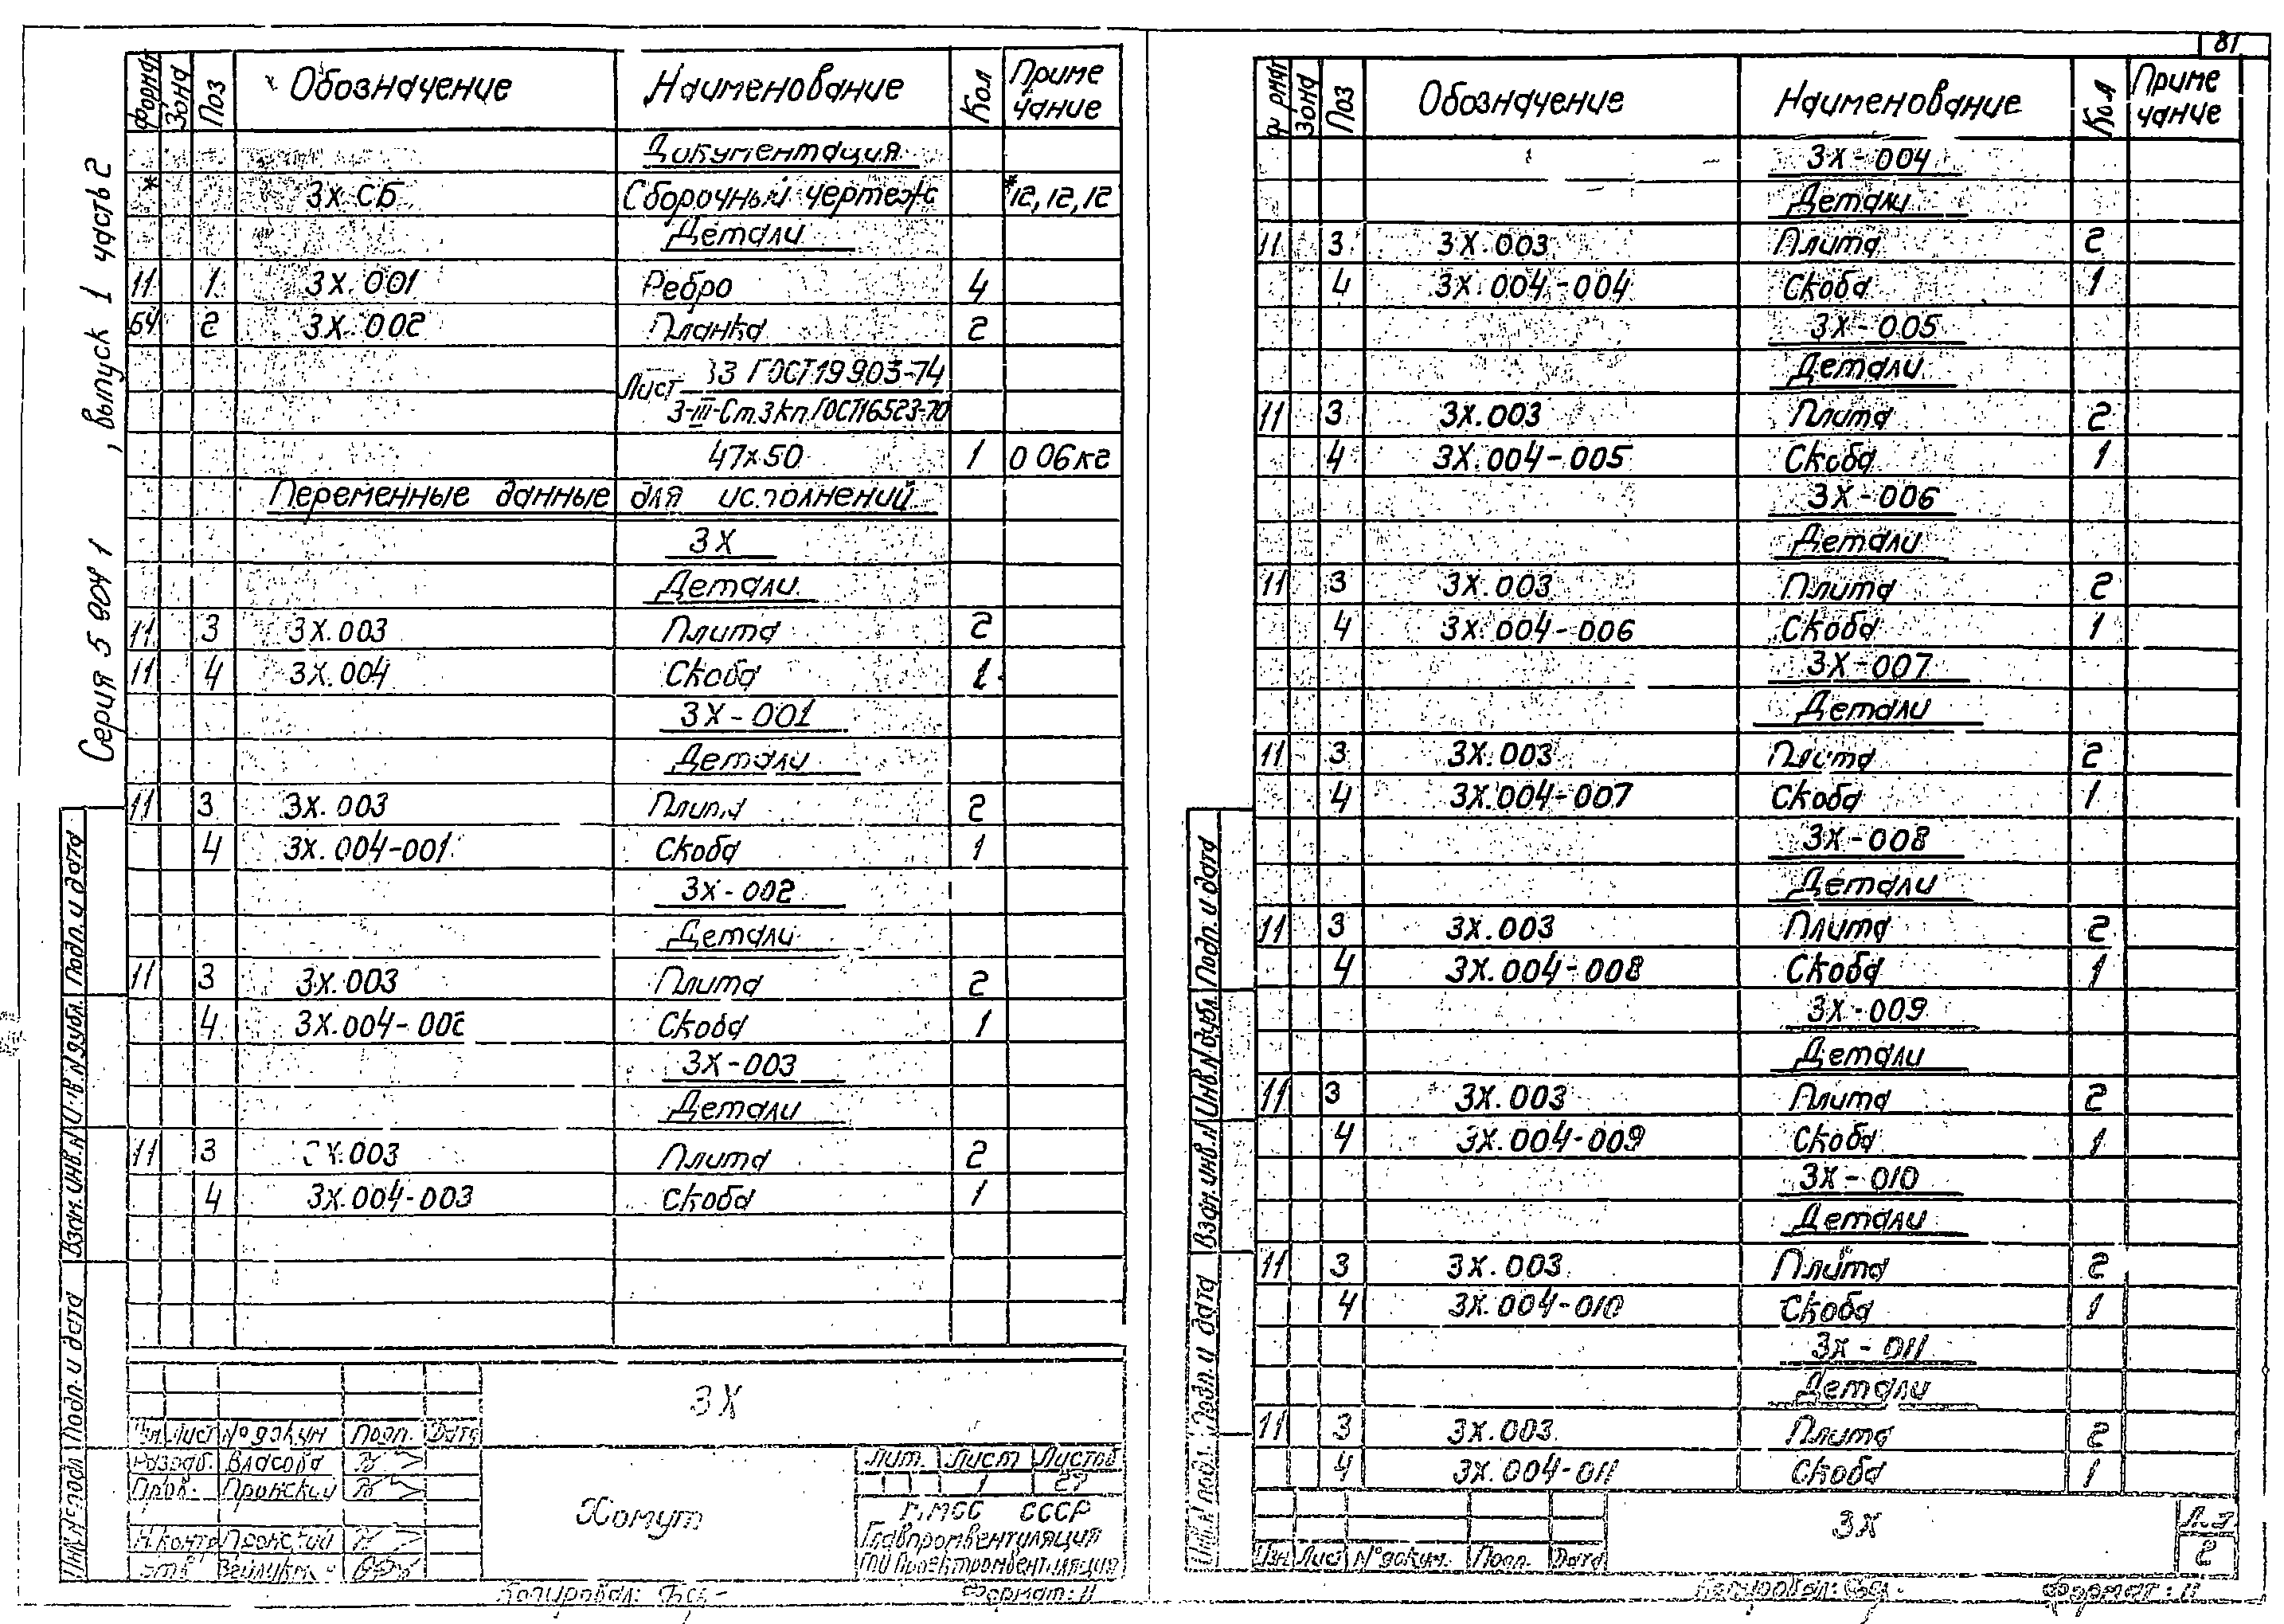 81
Серия 5 904 1 , выпуск 1 часть 2
Формат Зона Поз Обозначение Наименование Кол Приме чание
Документация
* 3Х СБ Сборочный чертеж *12,12,12
Детали
11 1 3Х.001 Ребро 4
БЧ 2 3Х 002 Планка 2
Лист 3 ГОСТ 19903-74
3-III-Ст.3кп.ГОСТ16523-70
47х50 1 0 06кг
Переменные данные для исполнений
3Х
Детали
11 3 3Х.003 Плита 2
11 4 3Х.004 Скоба 1
3Х-001
Детали
11 3 3Х.003 Плита 2
4 3Х.004-001 Скоба 1
3Х-002
Детали
11 3 3Х.003 Плита 2
4 3Х.004-002 Скоба 1
3Х-003
Детали
11 3 3Х.003 Плита 2
4 3Х.004-003 Скоба 1
Подп. и дата
Инв.N дубл.
Взам.инв.N
Подп. и дата
Инв.N подл
3Х
Изм. Лист N° докум Подп. Дата
Разраб. Власова
Пров. Пронский
Н.контр Пронский
Утв
Хомут
Лит. Лист Листов
1 27
ГПИ Проектпромвентиляция
ММСС СССР
Главпромвентиляция
Копировал:
Формат: 11
Формат Зона Поз Обозначение Наименование Кол Приме чание
3Х-004
Детали
11 3 3Х.003 Плита 2
4 3Х.004-004 Скоба 1
3Х-005
Детали
11 3 3Х.003 Плита 2
4 3Х.004-005 Скоба 1
3Х-006
Детали
11 3 3Х.003 Плита 2
4 3Х.004-006 Скоба 1
3Х-007
Детали
11 3 3Х.003 Плита 2
4 3Х.004-007 Скоба 1
3Х-008
Детали
11 3 3Х.003 Плита 2
4 3Х.004-008 Скоба 1
3Х-009
Детали
11 3 3Х.003 Плита 2
4 3Х.004-009 Скоба 1
3Х-010
Детали
11 3 3Х.003 Плита 2
4 3Х.004-010 Скоба 1
3Х-011
Детали
11 3 3Х.003 Плита 2
4 3Х.004-011 Скоба 1
Подп. и дата
Инв.N дубл.
Взам.инв.N
Подп. и дата
Инв.N подл.
Изм Лист N° докум. Подп. Дата
3Х
2
Копировал:
Формат: 11